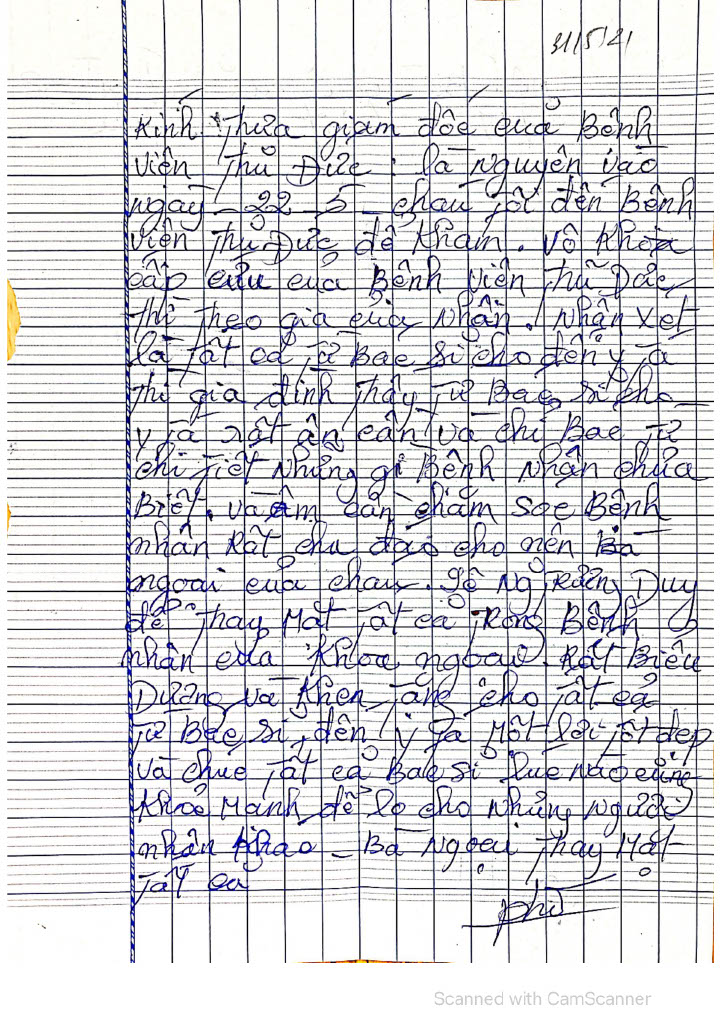 31/5/21
Kính Thưa giám đốc cuả Bệnh
viện Thủ Đức : là Nguyên vào
ngày _ 22 _ 5 _ cháu tôi đến Bệnh
viện Thủ Đức để Khám . vô Khoa
cấp cứu của Bệnh viện Thủ Đức
thì Theo gia của Nhân . Nhận xét
là Tất cả Từ Bác sĩ cho đến y Tá
thì gia đình Thấy Từ Bác sĩ cho
y Tá rất ân cần và chỉ Bác Từ
chi Tiết Những gì Bệnh Nhân chưa
Biết . và cần chăm Sóc Bệnh
nhân Rất chu đáo cho nên Bà
ngoại cuả cháu . Lê Ng Trường Duy
để Thay Mặt Tất cả Trong Bệnh
nhân của Khoa ngoại . Rất Biểu
Dương và Khen Tặng cho Tất cả
Từ Bác sĩ , đến y Tá Một lời Tốt đẹp
và chúc Tất cả Bác Sĩ lúc Nào cũng
Khoẻ Mạnh để lo cho Những Người
nhân Khác _ Bà Ngoại Thay Mặt
Tất cả
Scanned with CamScanner